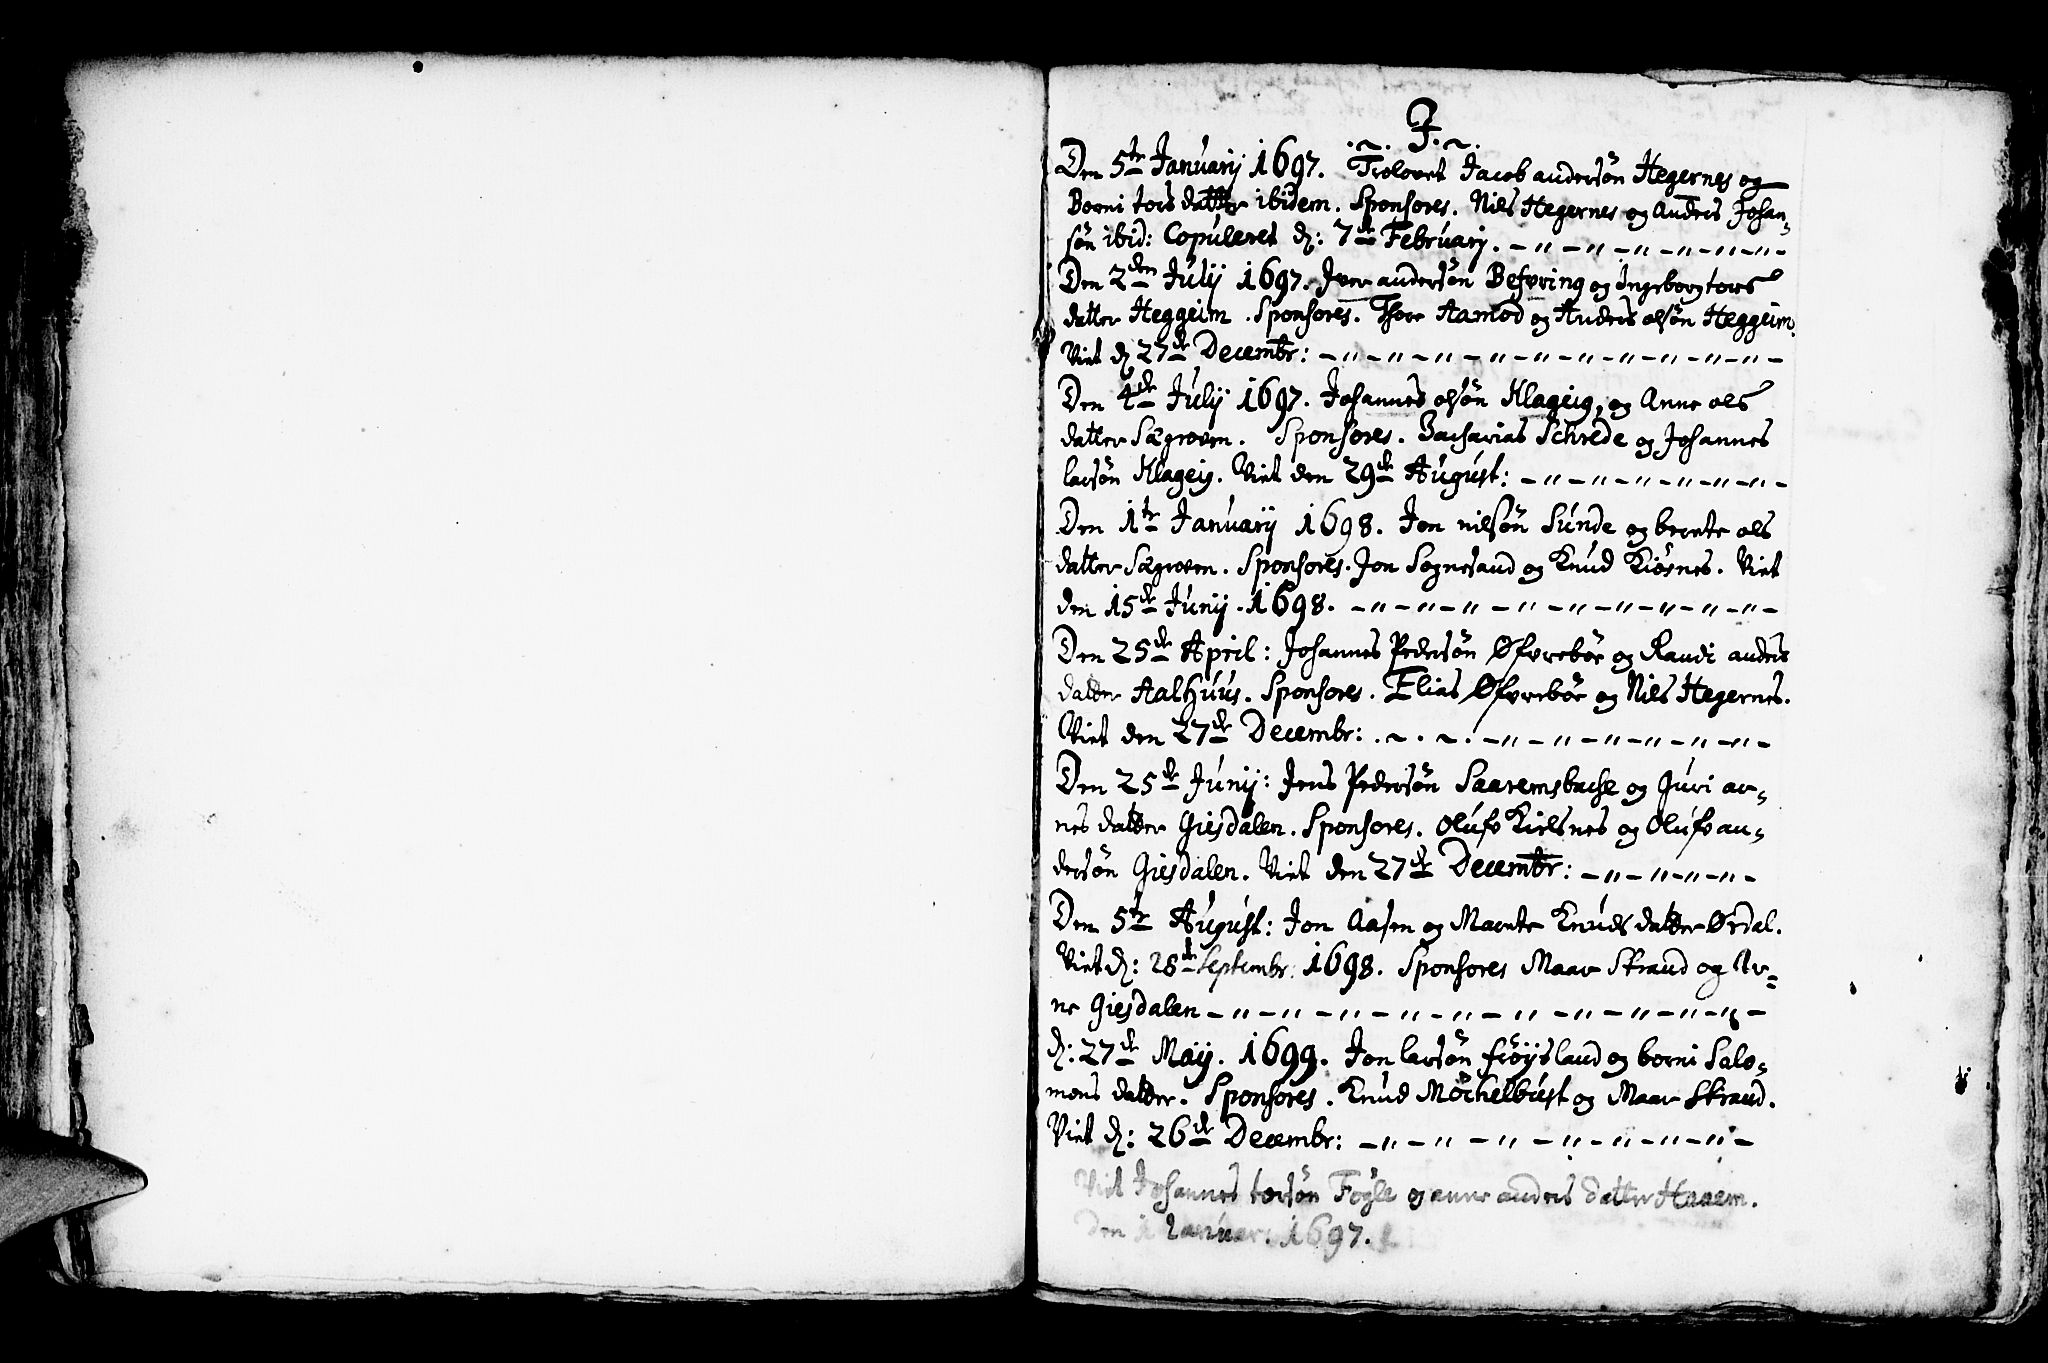 J.
Den 5te Januarij 1697. Trolovet Jacob andersön Hegernes og
Borni tors datter ibidem. Sponsores. Niels Hegernes og Anders Johan-
sön ibid: Copuleret d: 7de Februarij.
Den 2den Julij 1697. Iver andersön Befvring og Ingeborg tors
datter Heggeim. Sponsores. Thore Aamod og Anders olsön Heggeim.
Viet d 27de Decembr:
Den 4de Julij 1697. Johannes olsön Klageig, og Anne ols
datter Sægroven. Sponsores. Zacharias Schrede og Johannes
larsön Klageig. Viet den 29de August:
Den 1te Januarij 1698. Jon nilsön Sunde og berete ols
datter Sægroven. Sponsores. Jon Sognesand og Knud Kiösnes. Viet
den 15de Junij. 1698.
Den 25de April: Johannes Pedersön Øfvrebøe og Randi anders
datter Aalhuus. Sponsores. Elias Øfvrebøe og Niels Hegernes.
Viet den 27de Decembr:
Den 25de Junij: Jens Pedersön Saaremsbache og Guri ar-
nes datter Giesdalen. Sponsores. Olufv Kielsnes og Olufv an-
dersön Giesdalen. Viet den 27de Decembr:
Den 5te August: Jon Aasen og Marete Knuds datter Ørdal.
Viet d: 28de Septembr: 1698. Sponsores Maar Strand og Ar-
ne Giesdalen
d: 27de Maij. 1699. Jon larsön fröysland og borni Salo-
mons datter. Sponsores. Knud Möchelbust og Maar Strand.
Viet d: 26de Decembr:
Viet Johannes torsön Fogle og anne anders datter Haaem.
Den 1 Januar: 1697.